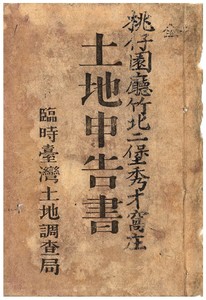 桃仔園廳竹北二堡秀才窩庄
土地申告書
臨時臺灣土地調查局